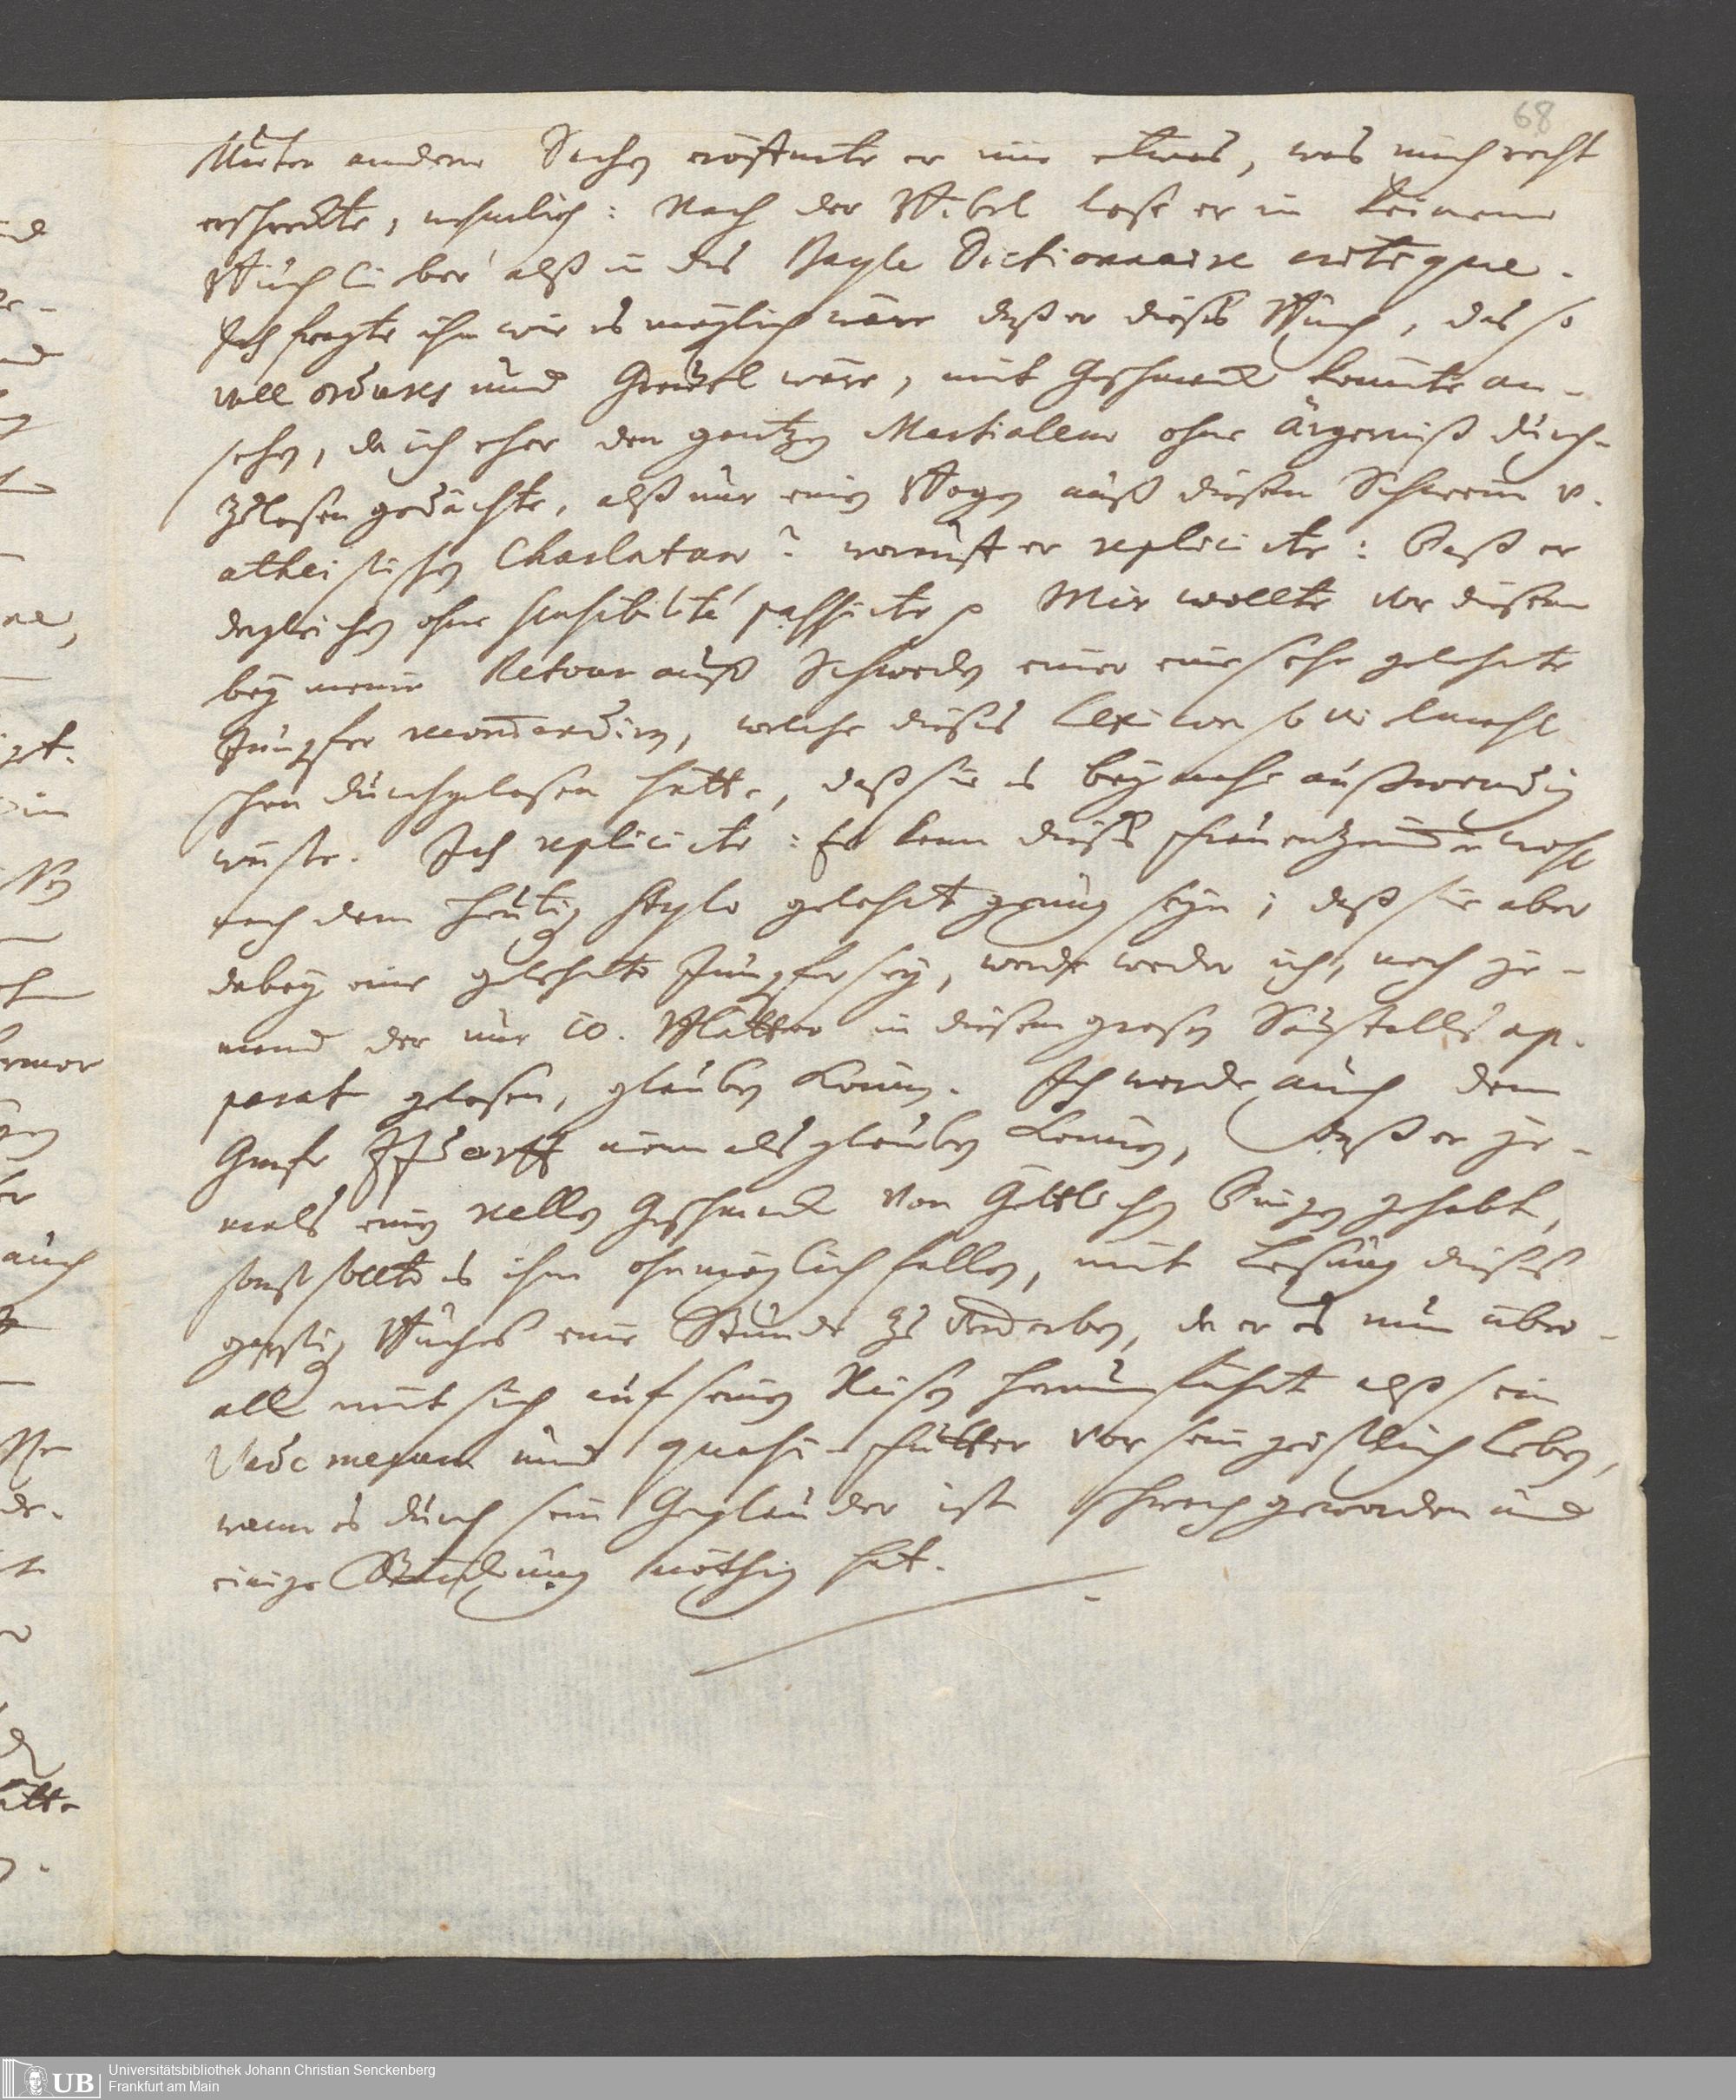 68
Unter andern Sachen eröffnete er mir etwas, was mich recht
erschreckte, nehmlich: Nach der Bibel lese er in keinem
Buch lieber alß in des Bayle Dictionnaire critique.
Ich fragte ihn wie es möglich wäre daß er dieses Buch, das so
voll ordures und Greuel wäre, mit Geschmack konnte an-
sehen, da ich eher den gantzen Martialem ohne Ärgerniß durch-
zulesen gedächte, alß nur einen Bogen auß diesem Schwein u.
atheistischen Charlatan? worauf er replicirte: Daß er
dergleichen ohne sensibilité passirte Mir wollte vor diesem
bey meiner Retour auß Schweden einer eine sehr gelehrte
Jungfer recommandiren, welche dieses Lexicon so vielmahl
schon durchgelesen hätte, daß sie es beynahe außwendig
wuste. Ich replicirte: Es kann dieses Frauenzimmer wohl
nach dem heutigen stylo gelehrt genug seyn; daß sie aber
dabey eine gelehrte Jungfer sey, werde weder ich, noch je-
mand der nur 10. Blätter in diesem grosen Saustalls ap-
parat gelesen, glauben können. Ich werde auch dem
Grafe Zzdorff niemals glauben können, daß er je-
mals einen reellen Geschmack von Göttlichen Dingen gehabt,
sonst sollte es ihm ohnmöglich fallen, mit Lesung dieses
garstigen Buches eine Stunde zu verderben, da er es nun über-
all mit sich auf seinen Reisen herumführt alß sein
Vade mecum und quasi-Futter vor sein geistlich Leben,
wann es durch sein Geplauder ist schwach geworden und
einige Stärckung nöthig hat.
Universitätsbibliothek Johann Christian Senckenberg
Frankfurt am Main
UB